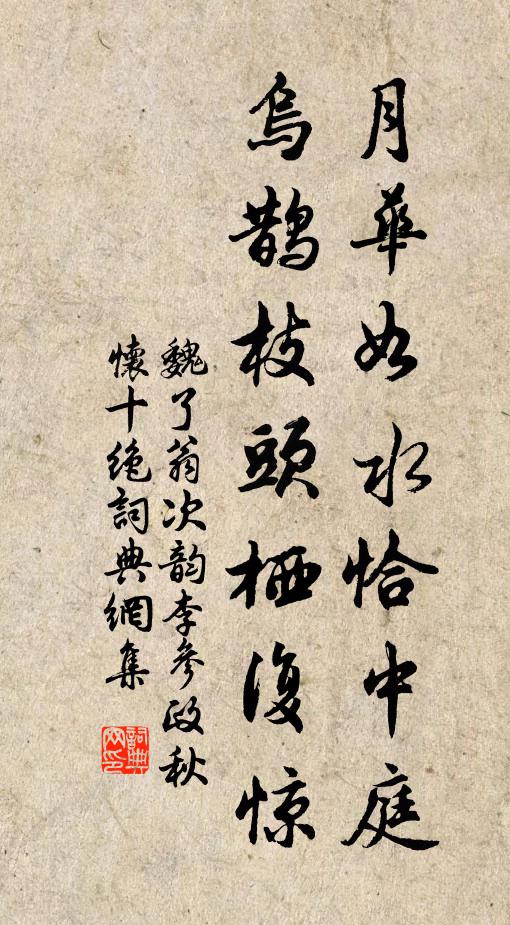 月華如水恰中庭
烏鵲枝頭栖復惊
魏了翁次韵李參政秋
懷十絶詞典網集
詞典
网印